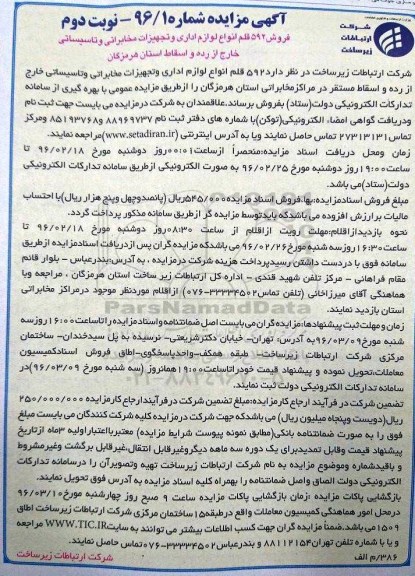 شرکت
ارتباطات
زیرساخت
آگهی مزایده شماره ۹۶/۱ - نوبت دوم
فروش ۵۹۲ قلم انواع لوازم اداری و تجهیزات مخابراتی وتاسیساتی
خارج از رده و اسقاط استان هرمزگان
شرکت ارتباطات زیرساخت در نظر دارد ۵۹۲ قلم انواع لوازم اداری وتجهیزات مخابراتی وتاسیساتی خارج
از رده و اسقاط مستقر در مراکزمخابراتی استان هرمزگان را ازطریق مزایده عمومی با بهره گیری از سامانه
تدارکات الکترونیکی دولت(ستاد) بفروش برساند.علاقمندان به شرکت درمزایده می بایست جهت ثبت نام
ودریافت گواهی امضاء الکترونیکی(توکن)با شماره های دفتر ثبت نام ۸۸۹۶۹۷۳۷ و۸۵۱۹۳۷۶۸ ومرکز
تماس ۲۷۳۱۳۱۳۱ تماس حاصل نمایند ویا به آدرس اینترنتی (www.setadiran.ir)مراجعه نمایند.
زمان ومحل دریافت اسناد مزایده:منحصراً ازساعت۰۰:۰۱روز دوشنبه مورخ ۹۶/۰۲/۱۸ تا
ساعت۱۹:۰۰روز دوشنبه مورخ ۹۶/۰۲/۲۵ به صورت الکترونیکی ازطریق سامانه تدارکات الکترونیکی
دولت(ستاد)می باشد.
مبلغ فروش اسنادمزایده:بها،فروش اسناد مزایده۵۴۵/۰۰۰ریال (پانصدوچهل وپنج هزار ریال)با احتساب
مالیات برارزش افزوده می باشدکه بایدتوسط مزایده گر ازطریق سامانه مذکور پرداخت گردد.
نحوه بازدیدازاقلام:مهلت رویت ازاقلام از ساعت ۰۸:۳۰روز دوشنبه مورخ ۹۶/۰۲/۱۸ تا
ساعت۱۶:۳۰روزسه شنبه مورخ۹۶/۰۲/۲۶ می باشدکه مزایده گران پس ازدریافت اسنادمزایده ازطریق
سامانه فوق با دردست داشتن رسیدپرداخت هزینه شرکت درمزایده ، به آدرس:بندرعباس - بلوار قائم
مقام فراهانی - مرکز تلفن شهید قندی - اداره کل ارتباطات زیر ساخت استان هرمزگان ، مراجعه وبا
هماهنگی آقای میرزاخانی (تلفن تماس۳۳۳۳۴۵۰۲-۰۷۶) ازاقلام موردنظر موجود درمراکز مخابراتی
استان بازدید نمایند.
زمان ومهلت ثبت پیشنهادها:مزایده گران می بایست اصل ضمانتنامه واسنادمزایده راتاساعت۱۶:۰۰روزسه
شنبه مورخ۹۶/۰۳/۰۹به آدرس: تهران- خیابان دکترشریعتی- نرسیده به پل سیدخندان- ساختمان
مرکزی شرکت ارتباطات زیرساخت- طبقه همکف-واحدپاسخگویی-اطاق فروش اسنادکمیسیون
معاملات،تحویل نموده و پیشنهاد قیمت خودراتاساعت۱۹:۰۰همانروز (سه شنبه مورخ ۹۶/۰۳/۰۹)در
سامانه تدارکات الکترونیکی دولت ثبت نمایند.
تضمین شرکت در فرآیند ارجاع کارمزایده:مبلغ تضمین شرکت درفرآیندارجاع کارمزایده ۲۵۰/۰۰۰/۰۰۰
ریال(دویست وپنجاه میلیون ریال) می باشدکه جهت شرکت درمزایده کلیه شرکت کنندگان می بایست مبلغ
فوق را به صورت ضمانتنامه بانکی(مطابق نمونه پیوست شرایط مزایده) معتبربااعتباراولیه ۳ماه ازتاریخ
پیشنهاد قیمت وقابل تمدیدبرای یک دوره سه ماهه دیگروغیرقابل انتقال،غیرقابل برگشت وغیرمشروط
و باقیدشماره وموضوع مزایده به نام شرکت ارتباطات زیرساخت تهیه وتصویرآن را درسامانه تدارکات
الکترونیکی دولت الصاق واصل ضمانتنامه را بهمراه کلیه اسناد مزایده به آدرس فوق تحویل نمایند.
بازگشایی پاکات مزایده :زمان بازگشایی پاکات مزایده ساعت ۹ صبح روز چهارشنبه مورخ۹۶/۰۳/۱۰
درمحل امور هماهنگی کمیسیون معاملات واقع درطبقه۱۵ساختمان مرکزی شرکت ارتباطات زیرساخت اطاق
۱۵۰۹می باشد.ضمناً مزایده گران جهت کسب اطلاعات بیشتر می توانند به سایتWWW.TIC.IR مراجعه
و یا با شماره تلفن تهران۸۸۱۱۲۱۵۴ و بندرعباس۳۳۳۳۴۵۰۲-۰۷۶تماس حاصل نمایند.
۳۸۶/م الف
شرکت ارتباطات زیرساخت
ParsNamadData